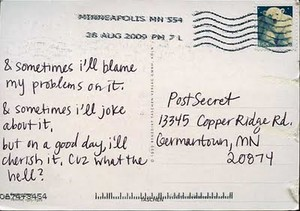 MINNEAPOLIS MN 554
28 AUG 2009 PM 7 L
& sometimes i'll blame
my problems on it.
& sometimes i'll joke
about it,
but on a good day, i'll
cherish it, cuz what the
hell?
PostSecret
13345 Copper Ridge Rd.
Germantown, MN
20874
TASCHEN